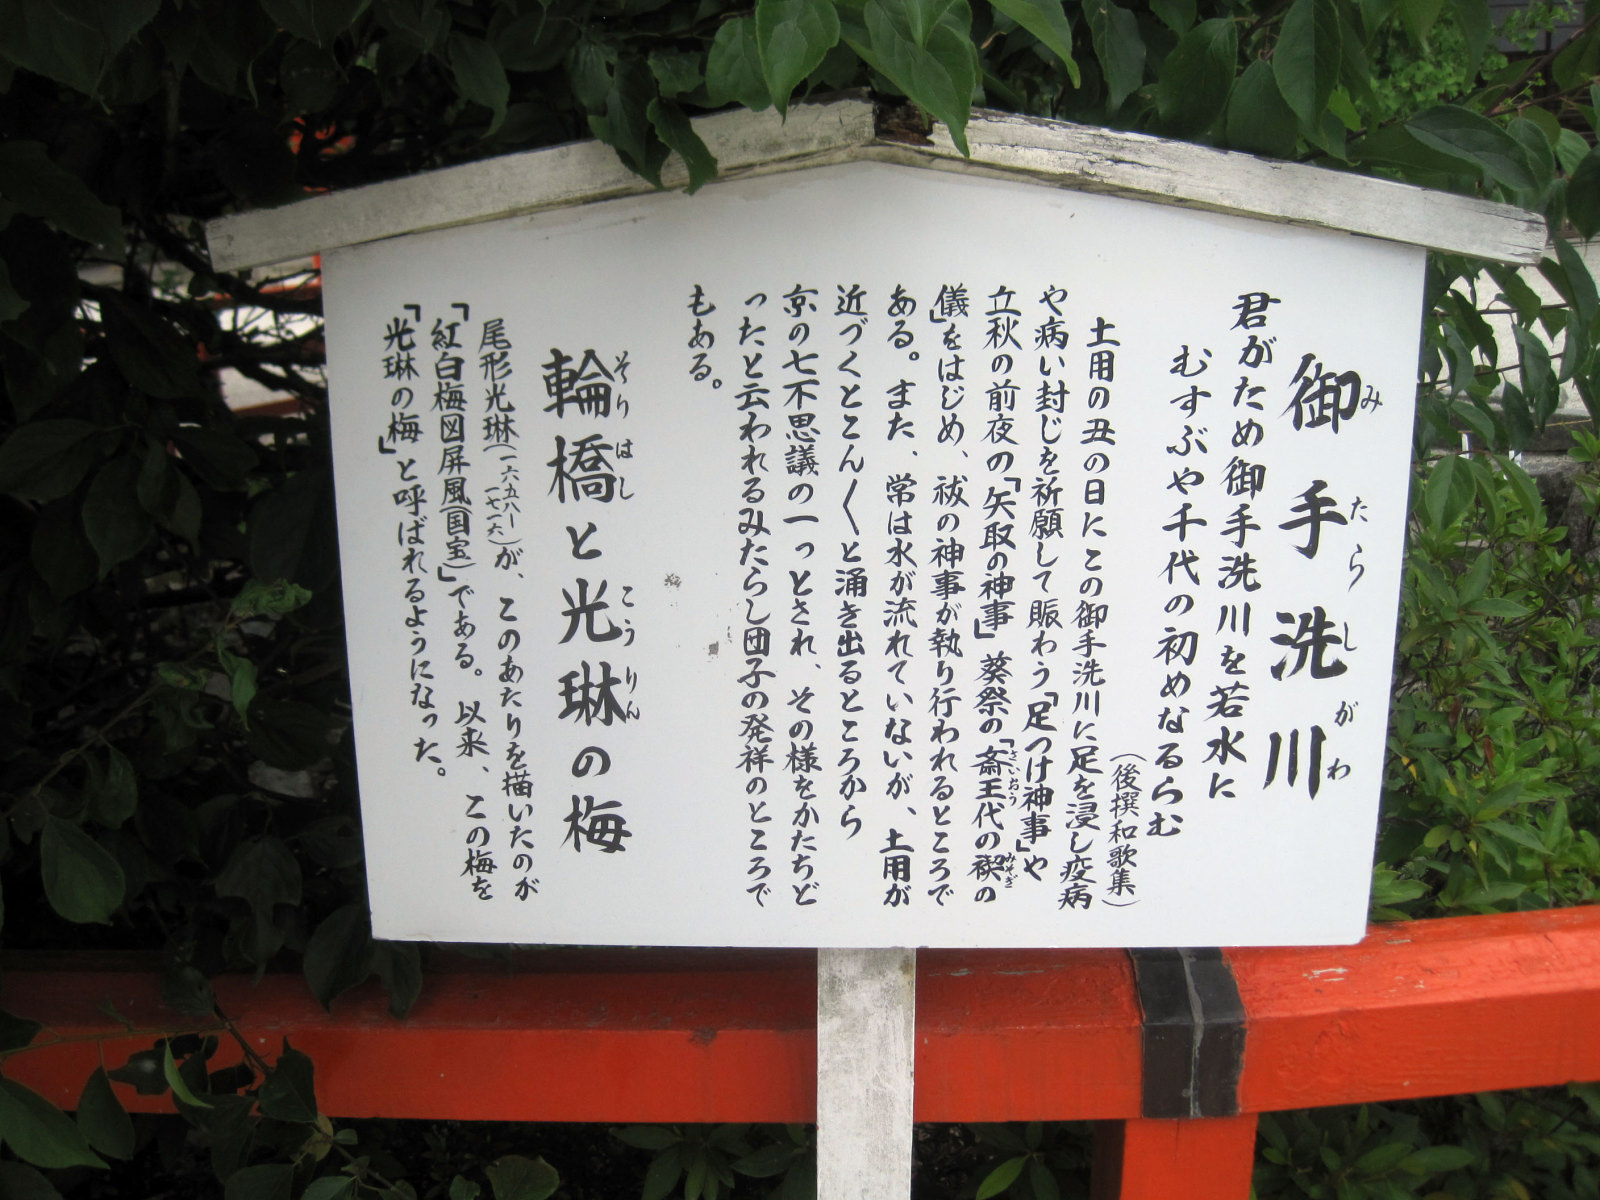 御手洗川
みたらしがわ
君がため御手洗川を若水に
むすぶや千代の初めなるらむ
(後撰和歌集)
土用の丑の日にこの御手洗川に足を浸し疫病
や病い封じを祈願して賑わう「足つけ神事」や
立秋の前夜の「矢取の神事」葵祭の「斎王代の禊の
さいおう
みそぎ
儀」をはじめ、祓の神事が執り行われるところで
ある。また、常は水が流れていないが、土用が
近づくとこん〱と涌き出るところから
京の七不思議の一っとされ、その様をかたちど
ったと云われるみたらし団子の発祥のところで
もある。
輪橋と光琳の梅
そりはし
こうりん
尾形光琳(一六五八ー一七一六)が、このあたりを描いたのが
「紅白梅図屏風(国宝)」である。以来、この梅を
「光琳の梅」と呼ばれるようになった。